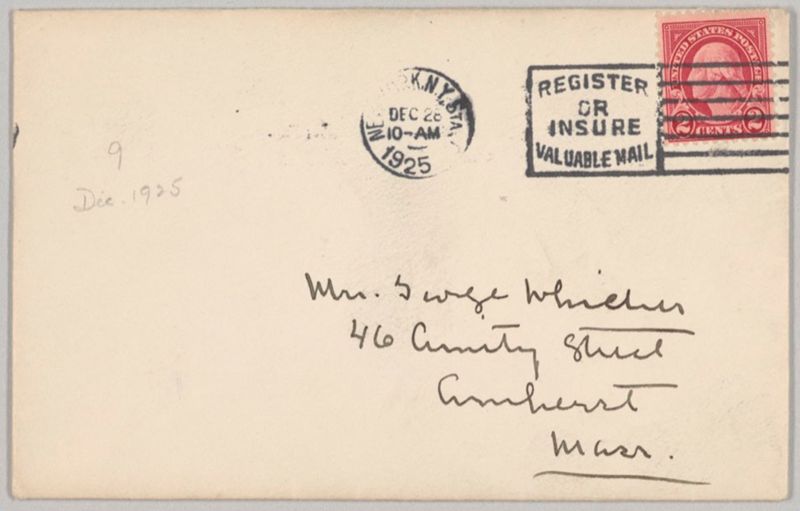 UNITED STATES POSTAGE
2 CENTS 2
NEW YORK, N.Y. STA.
DEC 28
10-AM
1925
REGISTER
OR
INSURE
VALUABLE MAIL
9
Dec. 1925
Mrs. George Whicher
46 Amity Street
Amherst
Mass.